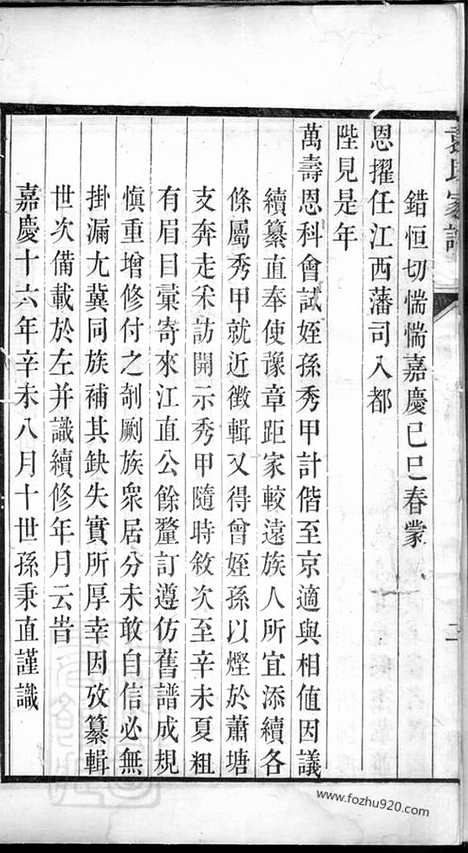 袁氏家譜
二
錯恒切惴惴嘉慶己巳春蒙
恩擢任江西藩司入都
陛見是年
萬壽恩科會試姪孫秀甲計偕至京適與相值因議
續纂直奉使豫章距家較遠族人所宜添續各
條屬秀甲就近徵輯又得曾姪孫以煙於蕭塘
支奔走采訪開示秀甲隨時敘次至辛未夏粗
有眉目彙寄來江直公餘釐訂遵仿舊譜成規
慎重增修付之剞劂族衆居分未敢自信必無
掛漏尢冀同族補其缺失實所厚幸因攷纂輯
世次備載於左并識續修年月云告
嘉慶十六年辛未八月十世孫秉直謹識
www.fozhu920.com